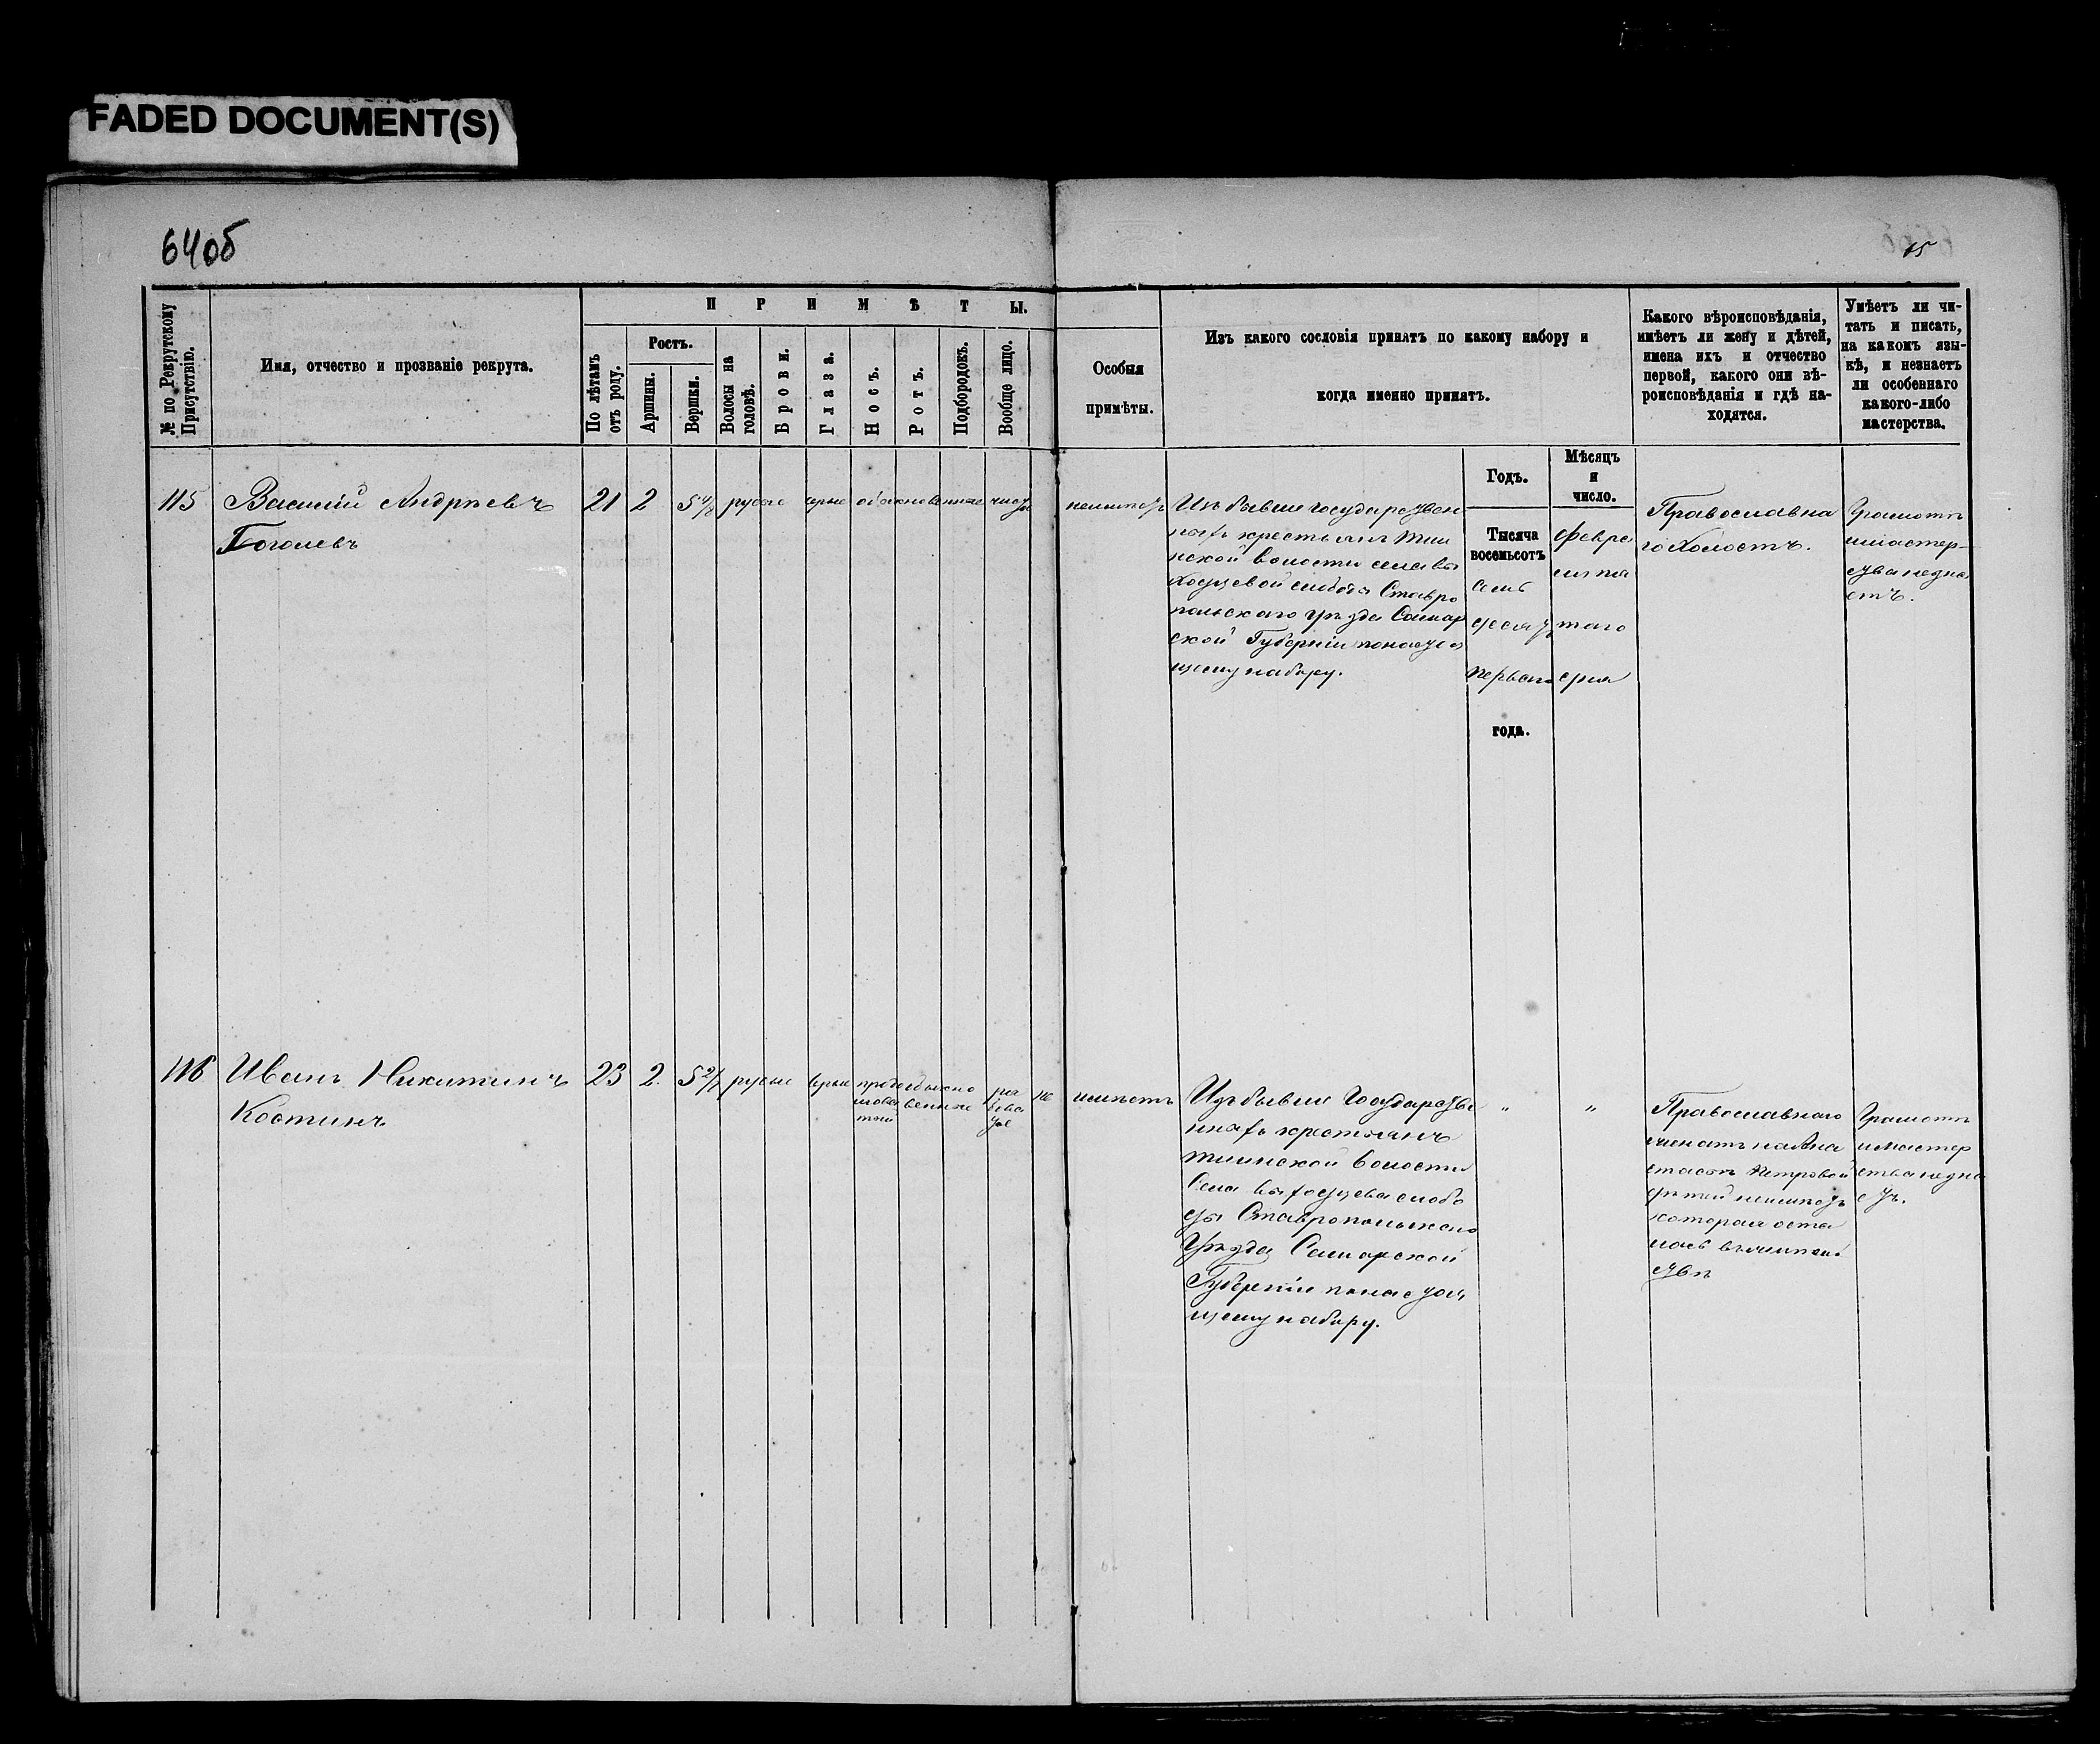 FADED DOCUMENT(S)
64об
65
№ по Рекрутскому Присутствію.
Имя, отчество и прозваніе рекрута.
ПРИМѢТЫ.
По лѣтамъ отъ роду.
Ростъ.
Аршины.
Вершки.
Волосы на головѣ.
Брови.
Глаза.
Носъ.
Ротъ.
Подбородокъ.
Вообще лицо.
Особыя
примѣты.
Изъ какого сословія принятъ по какому набору и
когда именно принятъ.
Какого вѣроисповѣданія,
имѣетъ ли жену и дѣтей,
имена ихъ и отчество
первой, какого они вѣ-
роисповѣданія и гдѣ на-
ходятся.
Умѣетъ ли чи-
тать и писать,
на какомъ язы-
кѣ, и незнаетъ
ли особеннаго
какого-либо
мастерства.
Годъ.
Мѣсяцъ
и
число.
115
Василій Андрѣевъ
Гоголевъ
21 2 5 4/8 русые серые обыкновенные чистое
неимѣетъ
Изъ бывши государствен
ныхъ крестьянъ Тіи
нской волости села Вы
ходцевой слободы Ставро
польскаго Уѣзда Самар
ской Губерніи понастоя
щему набору.
Тысяча
восемьсотъ
семь
десятъ
перваго
года.
Февра
ля пя
таго
дня
Православна
го Холостъ.
Грамотѣ
имастер-
ства незна
етъ.
116
Иванъ Никитинъ
Костинъ
23 2. 5 2/8 русые серые продолговатый обыкновенные рябоватое
не
имѣетъ
Изъ бывши Государстве
нныхъ крестьянъ
Тіинской волости
Села Выходцева слобо
ды Ставропольскаго
Уѣзда Самарской
Губерніи понастоя
щему набору.
" "
Православнаго
женатъ на Ана
стасіи Петровой
дѣтей неимѣетъ
которая оста
лась въ
Грамотѣ
имастер
ства незна
етъ.